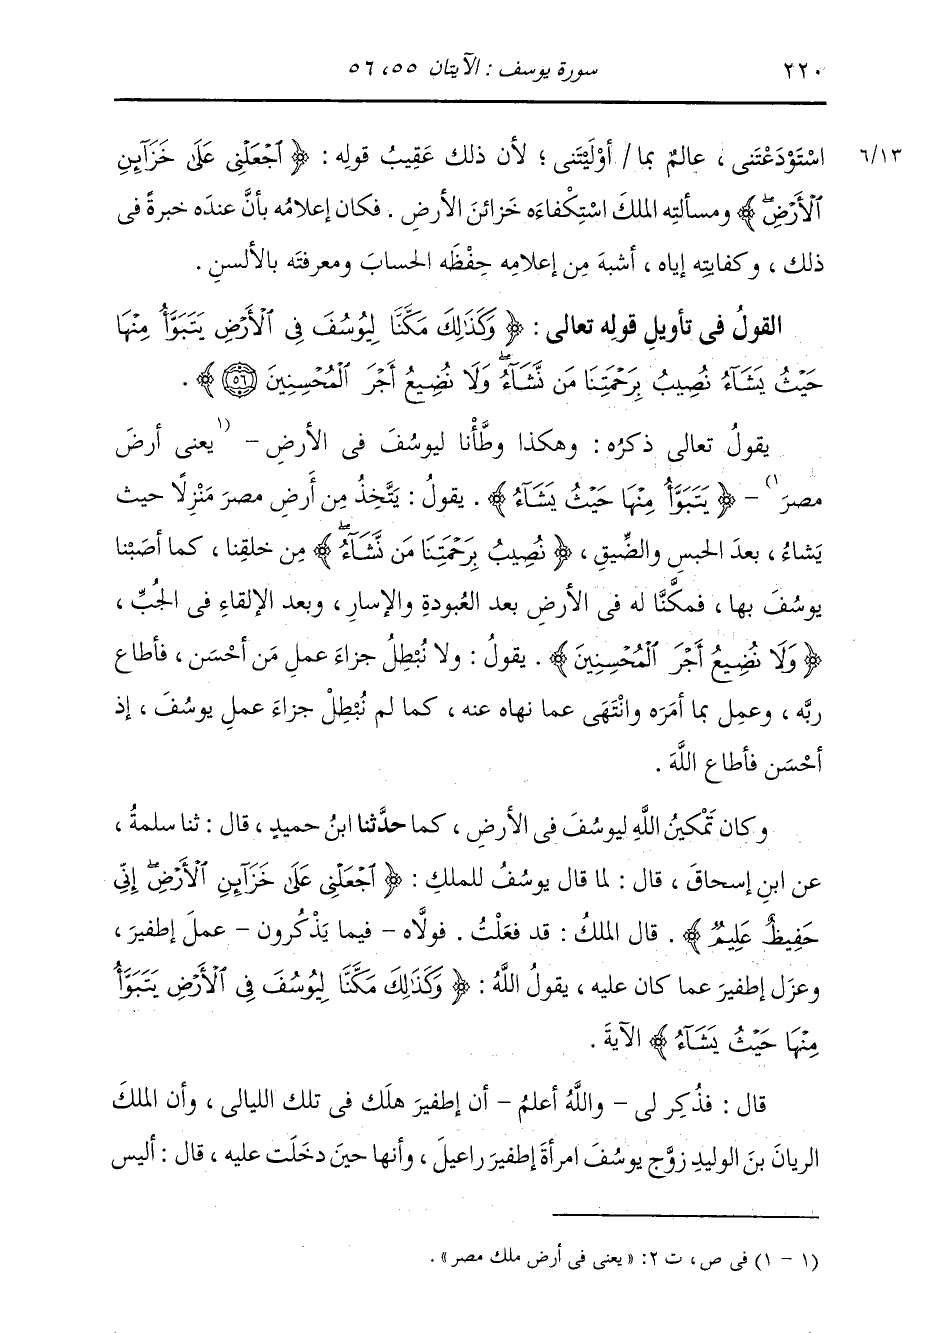 ٢٢٠ سورة يوسف : الآيتان ٥٥، ٥٦
٦/١٣ اسْتَوْدَعْتَنى ، عالمٌ بما / أوْلَيْتَنى ؛ لأن ذلك عَقِيبُ قولِه : ﴿ ٱجْعَلْنِى عَلَىٰ خَزَآئِنِ
ٱلْأَرْضِۖ ﴾ ومسألتِه الملكَ اسْتِكْفاءَه خزائنَ الأرضِ . فكان إعلامُه بأنَّ عندَه خبرةً فى
ذلك ، وكفايتِه إياه ، أشبهَ مِن إعلامِه حِفْظَه الحسابَ ومعرفتَه بالألسنِ .
القولُ فى تأويلِ قولِه تعالى : ﴿ وَكَذَٰلِكَ مَكَّنَّا لِيُوسُفَ فِى ٱلْأَرْضِ يَتَبَوَّأُ مِنْهَا
حَيْثُ يَشَآءُ نُصِيبُ بِرَحْمَتِنَا مَن نَّشَآءُۖ وَلَا نُضِيعُ أَجْرَ ٱلْمُحْسِنِينَ ﴿٥٦﴾ ﴾ .
يقولُ تعالى ذكرُه : وهكذا وطَّأْنا ليوسُفَ فى الأرضِ – (١يعنى أرضَ
مصرَ١) – ﴿ يَتَبَوَّأُ مِنْهَا حَيْثُ يَشَآءُ ﴾ . يقولُ : يَتَّخِذُ مِن أرضِ مصرَ مَنْزِلًا حيث
يَشاءُ ، بعدَ الحبسِ والضِّيقِ ، ﴿ نُصِيبُ بِرَحْمَتِنَا مَن نَّشَآءُۖ ﴾ مِن خلقِنا ، كما أصَبْنا
يوسُفَ بها ، فمكَّنَّا له فى الأرضِ بعد العُبودةِ والإسارِ ، وبعد الإلقاءِ فى الجُبِّ ،
﴿ وَلَا نُضِيعُ أَجْرَ ٱلْمُحْسِنِينَ ﴾ . يقولُ : ولا نُبْطِلُ جزاءَ عملِ مَن أحْسَن ، فأطاع
ربَّه ، وعمِل بما أمَرَه وانْتَهَى عما نهاه عنه ، كما لم نُبْطِلْ جزاءَ عملِ يوسُفَ ، إذ
أحْسَن فأطاع اللَّهَ .
وكان تَمْكينُ اللَّهِ ليوسُفَ فى الأرضِ ، كما حدَّثنا ابنُ حميدٍ ، قال : ثنا سلمةُ ،
عن ابنِ إسحاقَ ، قال : لما قال يوسُفُ للملكِ : ﴿ ٱجْعَلْنِى عَلَىٰ خَزَآئِنِ ٱلْأَرْضِۖ إِنِّى
حَفِيظٌ عَلِيمٌ ﴾ . قال الملكُ : قد فعَلْتُ . فولَّاه – فيما يَذْكُرون – عملَ إطفيرَ ،
وعزَل إطفيرَ عما كان عليه ، يقولُ اللَّهُ : ﴿ وَكَذَٰلِكَ مَكَّنَّا لِيُوسُفَ فِى ٱلْأَرْضِ يَتَبَوَّأُ
مِنْهَا حَيْثُ يَشَآءُ ﴾ الآيةَ .
قال : فذُكِر لى – واللَّهُ أعلمُ – أن إطفيرَ هلَك فى تلك الليالى ، وأن الملكَ
الريانَ بنَ الوليدِ زوَّج يوسُفَ امرأةَ إطفيرَ راعيلَ ، وأنها حينَ دخَلَت عليه ، قال : أليس
(١ – ١) فى ص ، ت ٢: «يعنى فى أرض ملك مصر» .